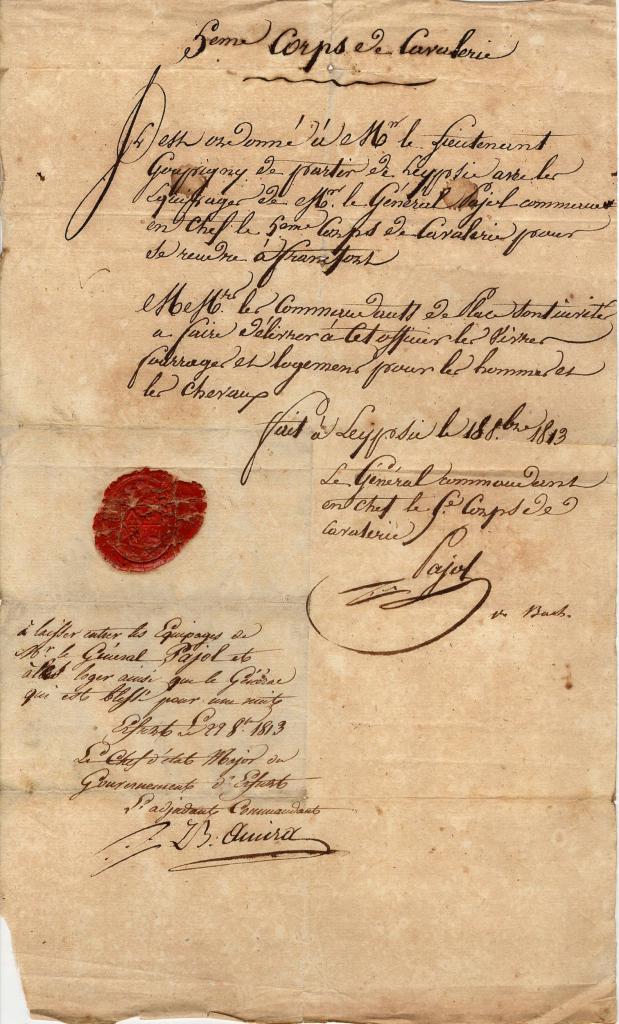 5eme Corps de Cavalerie
Il est ordonné à Mr. le Lieutenant
de partir de Leypsic avec les
Equipages de Mr. le Général Pajol commandt
en chef le 5eme Corps de Cavalerie pour
se rendre à francfort
MeMrs. les Commandants de Place sont invités
a faire délivrer à cet officier les vivres
fourrages et logement pour les hommes et
les chevaux
fait à Leypsic le 18 8.bre 1813
Le Général commandant
en chef le 5e. Corps de
Cavalerie
Pajol
à laisser entrer les Equipages de
Mr. le Général Pajol et
loger ainsi que le Général
qui est blessé pour une nuit
Erfurt Le 22 8.bre 1813
Le Chef d'état Major du
Gouvernement d'Erfurt
L'adjudant Commandant